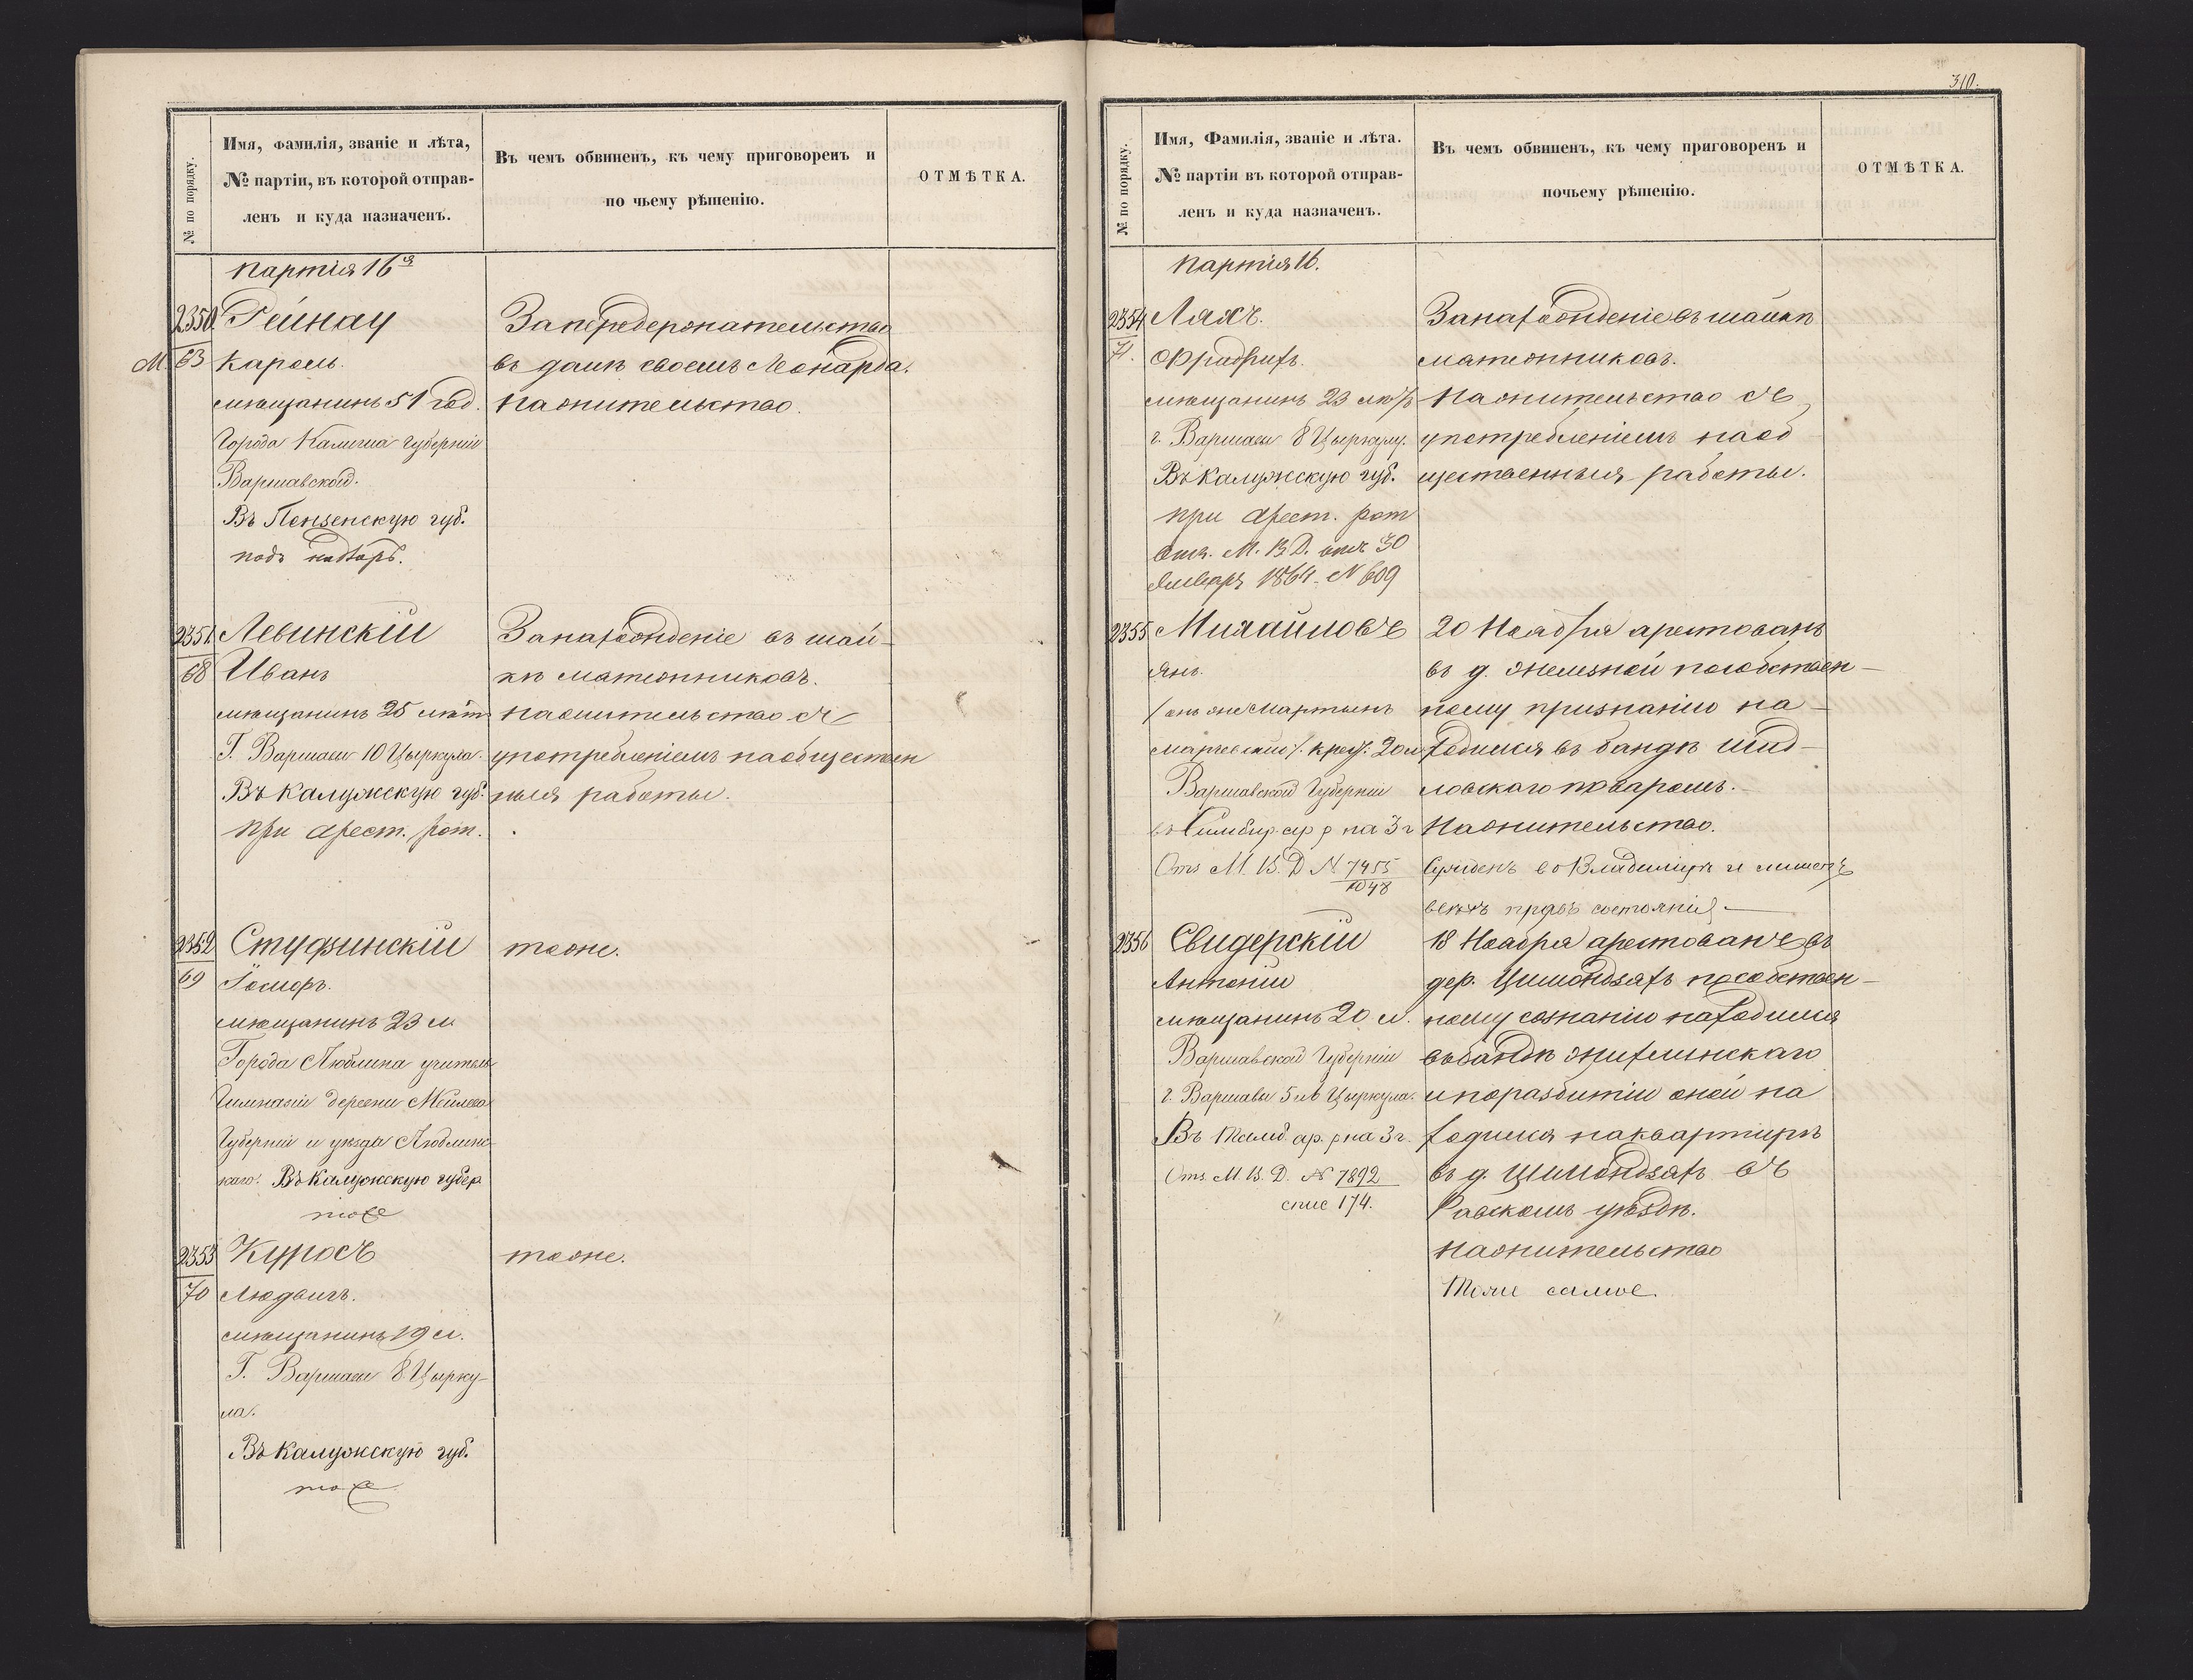 № по порядку.
Имя, фамилія, званіе и лѣта,
№ партіи, въ которой отправ-
ленъ и куда назначенъ.
Въ чемъ обвиненъ, къ чему приговоренъ и
по чьему рѣшенію.
ОТМѢТКА.
партія 16я
2350
М. 63
Рейнау
Кароль.
мѣщанинъ 51 год.
Города Калиша Губерніи
Варшавской.
Въ Пензенскую губ.
подъ надзоръ.
За передержательство
въ домѣ своемъ Леонарда.
На жительство.
2351
68
Левинскій
Иванъ
мѣщанинъ 25 лѣтъ
Г. Варшавы 10 Цыркула.
Въ Калужскую губ.
при арест. рот.
За нахожденіе въ шай-
кѣ мятежниковъ.
на жительство съ
употребленіемъ на обществен
ныя работы.
2352
69
Студзинскій
Іосифъ.
мѣщанинъ 23 л
Города Люблина учитель
Гимназіи деревни
Губерніи и уѣзда Люблинс-
каго. Въ Калужскую губер
тоже
тоже.
2353
70
Куросъ
Людвигъ.
мѣщанинъ 19 л.
Г. Варшавы 8 Цырку-
ла.
Въ Калужскую губ.
тоже
тоже.
310.
№ по порядку.
Имя, Фамилія, званіе и лѣта.
№ партіи въ которой отправ-
ленъ и куда назначенъ.
Въ чемъ обвиненъ, къ чему приговоренъ и
почьему рѣшенію.
ОТМѢТКА.
партія 16.
2354
71.
Ляхъ.
Фридрихъ.
мѣщанинъ 23 лѣтъ
г. Варшавы 8 Цыркулу.
Въ Калужскую губ.
при арест. рот
отн. М. В. Д. отъ 30
Января 1864. N 609
За нахожденіе въ шайкѣ
мятежниковъ.
На жительство съ
употребленіемъ на об
щественныя работы.
2355
Михайловъ
Янъ.
/ онъ же Мартынъ
/. крест. 20 л
Варшавской Губерніи
въ Симбир. ар р на 3 г
Отн М. В. Д N 7455
1048
20 Ноября арестованъ
въ д. Желѣзной по собствен-
ному признанію на-
ходился въ бандѣ Шид-
ловскаго поваромъ.
На жительство.
Сужденъ во Владимірѣ и лишенъ
всѣхъ правъ состоянія.
2356
Свидерскій
Антоній
мѣщанинъ 20 л.
Варшавской Губерніи
г. Варшавы 5 Цыркула.
Въ ар. р на 3 г.
Отн. М. В. Д. № 7892
спис 174.
18 Ноября арестованъ въ
дер. Цимондзахъ по собствен-
ному сознанію находился
въ бандѣ Жихлинскаго
и по разбитіи оной на
ходился на квартирѣ
въ д. Цимондзахъ въ
Равскомъ уѣздѣ.
На жительство
Тоже самое.